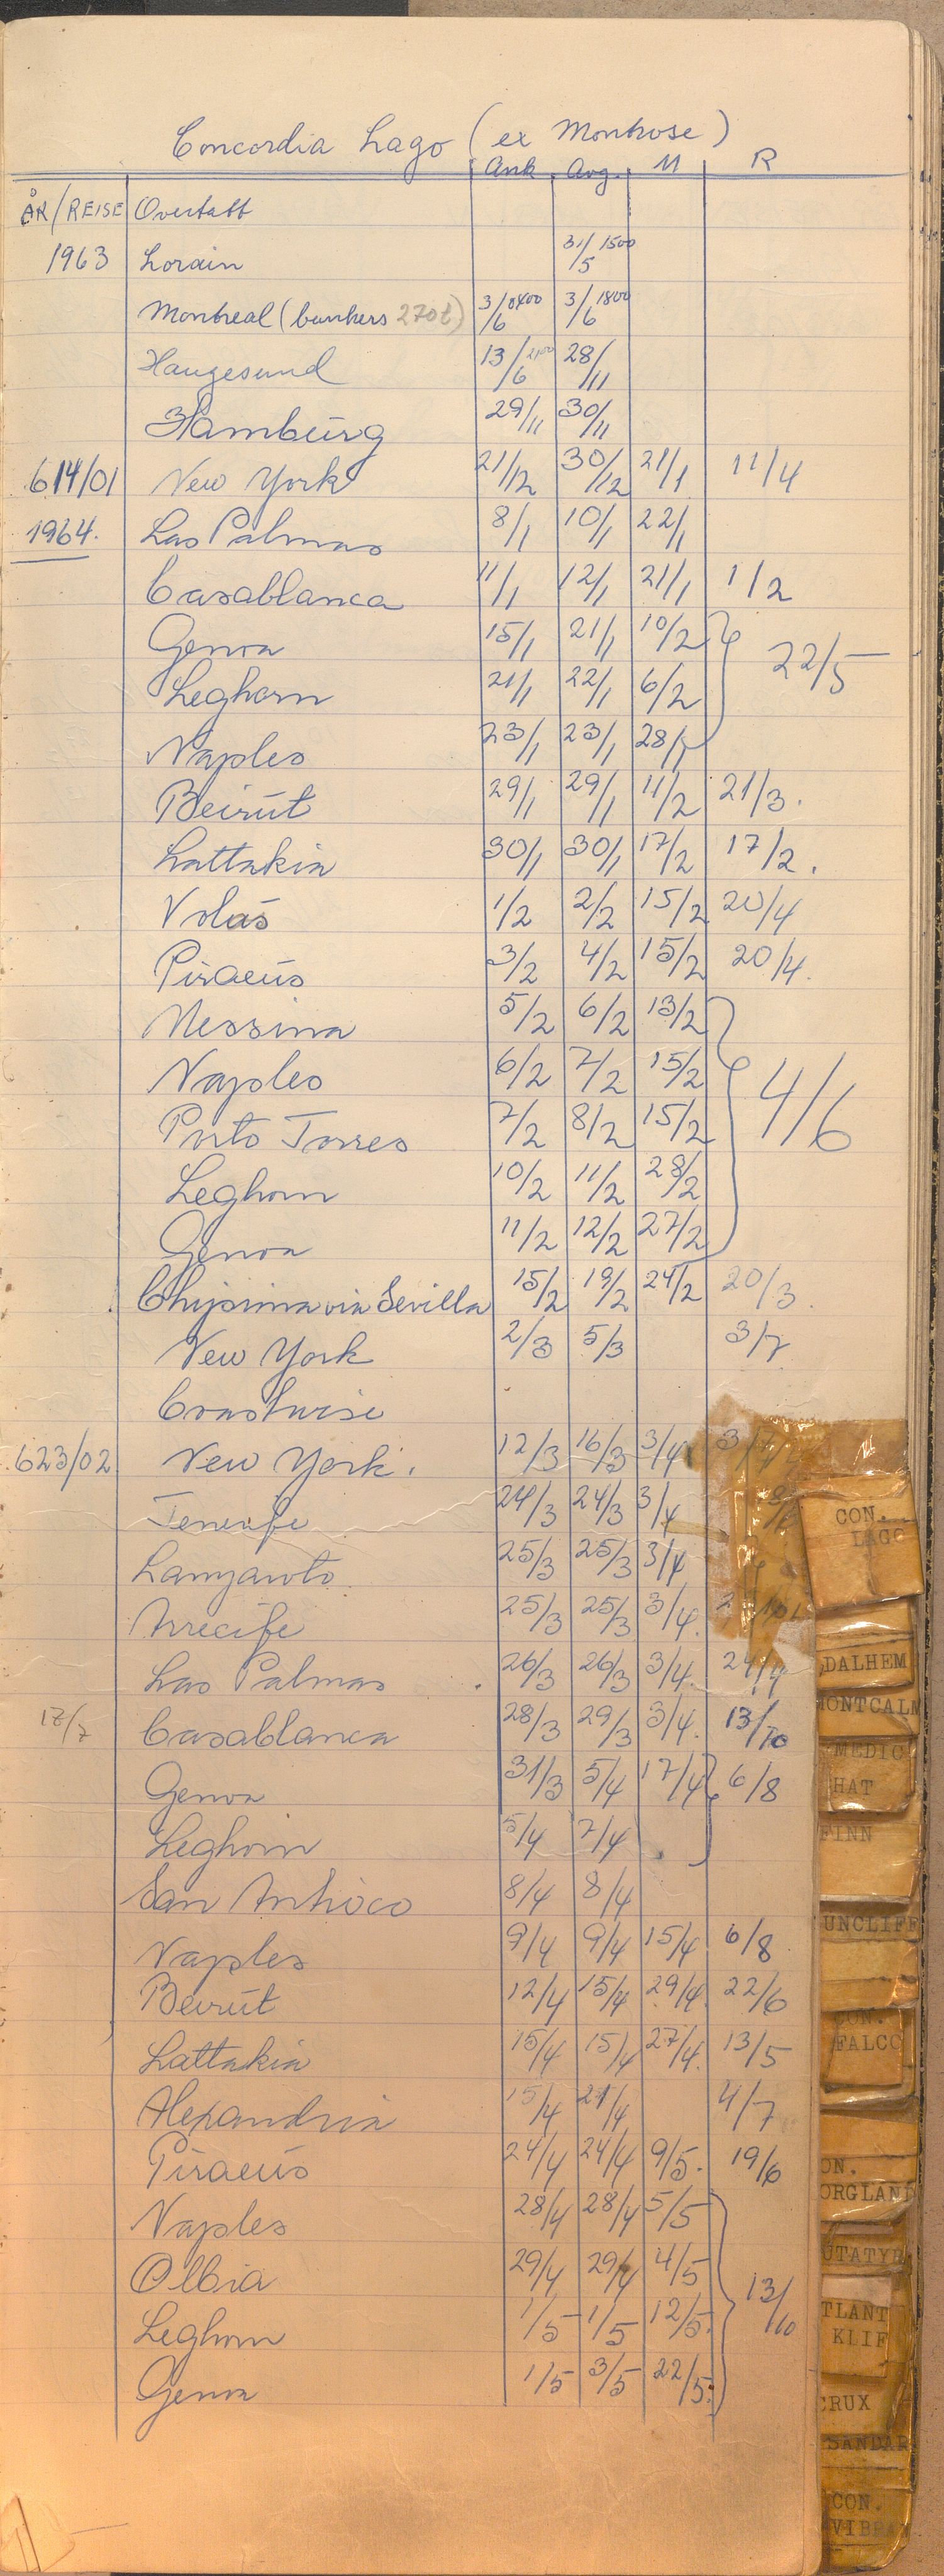 Concordia Lago (ex Montrose)
Ank Avg. M R
ÅR/REISE Overtatt
1963 Lorain 31/5 1500
Montreal (bunkers 270t) 3/6 0400 3/6 1800
Haugesund 13/6 2100 28/11
Hamburg 29/11 30/11
614/01 New York 21/12 30/12 21/1 11/4
1964. Las Palmas 8/1 10/1 22/1
Casablanca 11/1 12/1 21/1 1/2
Genoa 15/1 21/1 10/2 22/5
Leghorn 21/1 22/1 6/2
Naples 23/1 23/1 28/1
Beirut 29/1 29/1 11/2 21/3.
Lattakia 30/1 30/1 17/2 17/2.
Volos 1/2 2/2 15/2 20/4
Piraeus 3/2 4/2 15/2 20/4.
Messina 5/2 6/2 13/2
Naples 6/2 7/2 15/2 4/6
Porto Torres 7/2 8/2 15/2
Leghorn 10/2 11/2 28/2
Genoa 11/2 12/2 27/2
Chipiona via Sevilla 15/2 19/2 24/2 20/3.
New York 2/3 5/3 3/7
Coastwise
623/02 New York. 12/3 16/3 3/4
Tenerife 24/3 24/3 3/4
Lanzaroto 25/3 25/3 3/4
Arrecife 25/3 25/3 3/4.
Las Palmas. 26/3 26/3 3/4. 24/4
17/7 Casablanca 28/3 29/3 3/4. 13/10
Genoa 31/3 5/4 17/4 6/8
Leghorn 5/4 7/4
San Antioco 8/4 8/4
Naples 9/4 9/4 15/4 6/8
Beirut 12/4 15/4 29/4. 22/6
Lattakia 15/4 15/4 27/4. 13/5
Alexandria 15/4 21/4 4/7
Piraeus 24/4 24/4 9/5. 19/6
Naples 28/4 28/4 5/5
Olbia 29/4 29/4 4/5 13/10
Leghorn 1/5 1/5 12/5.
Genoa 1/5 3/5 22/5.
CON.
LAGO
DALHEM
MONTCALM
MEDIC
HAT
FINN
UNCLIFF
CON.
FALCO
ON.
ORGLAND
UTATYR
TLANT
KLIF
CRUX
SANDAR
CON.
VIBRA